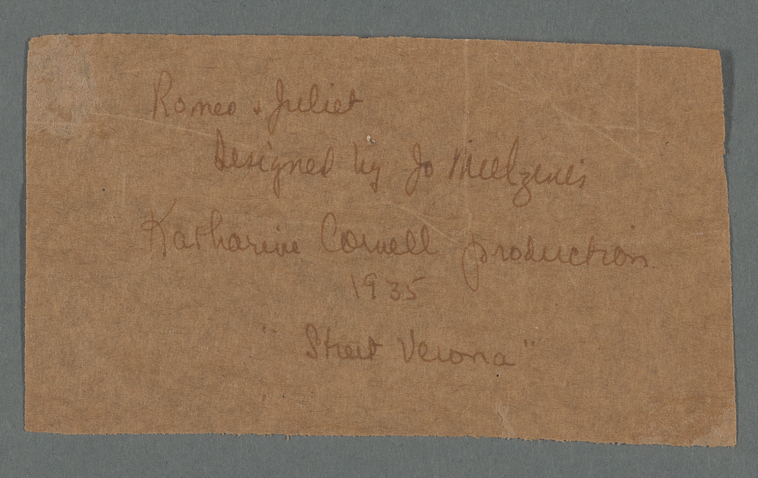 Romeo & Juliet
Designed by Jo Mielziner
Katharine Cornell production
1935
"Street Verona"